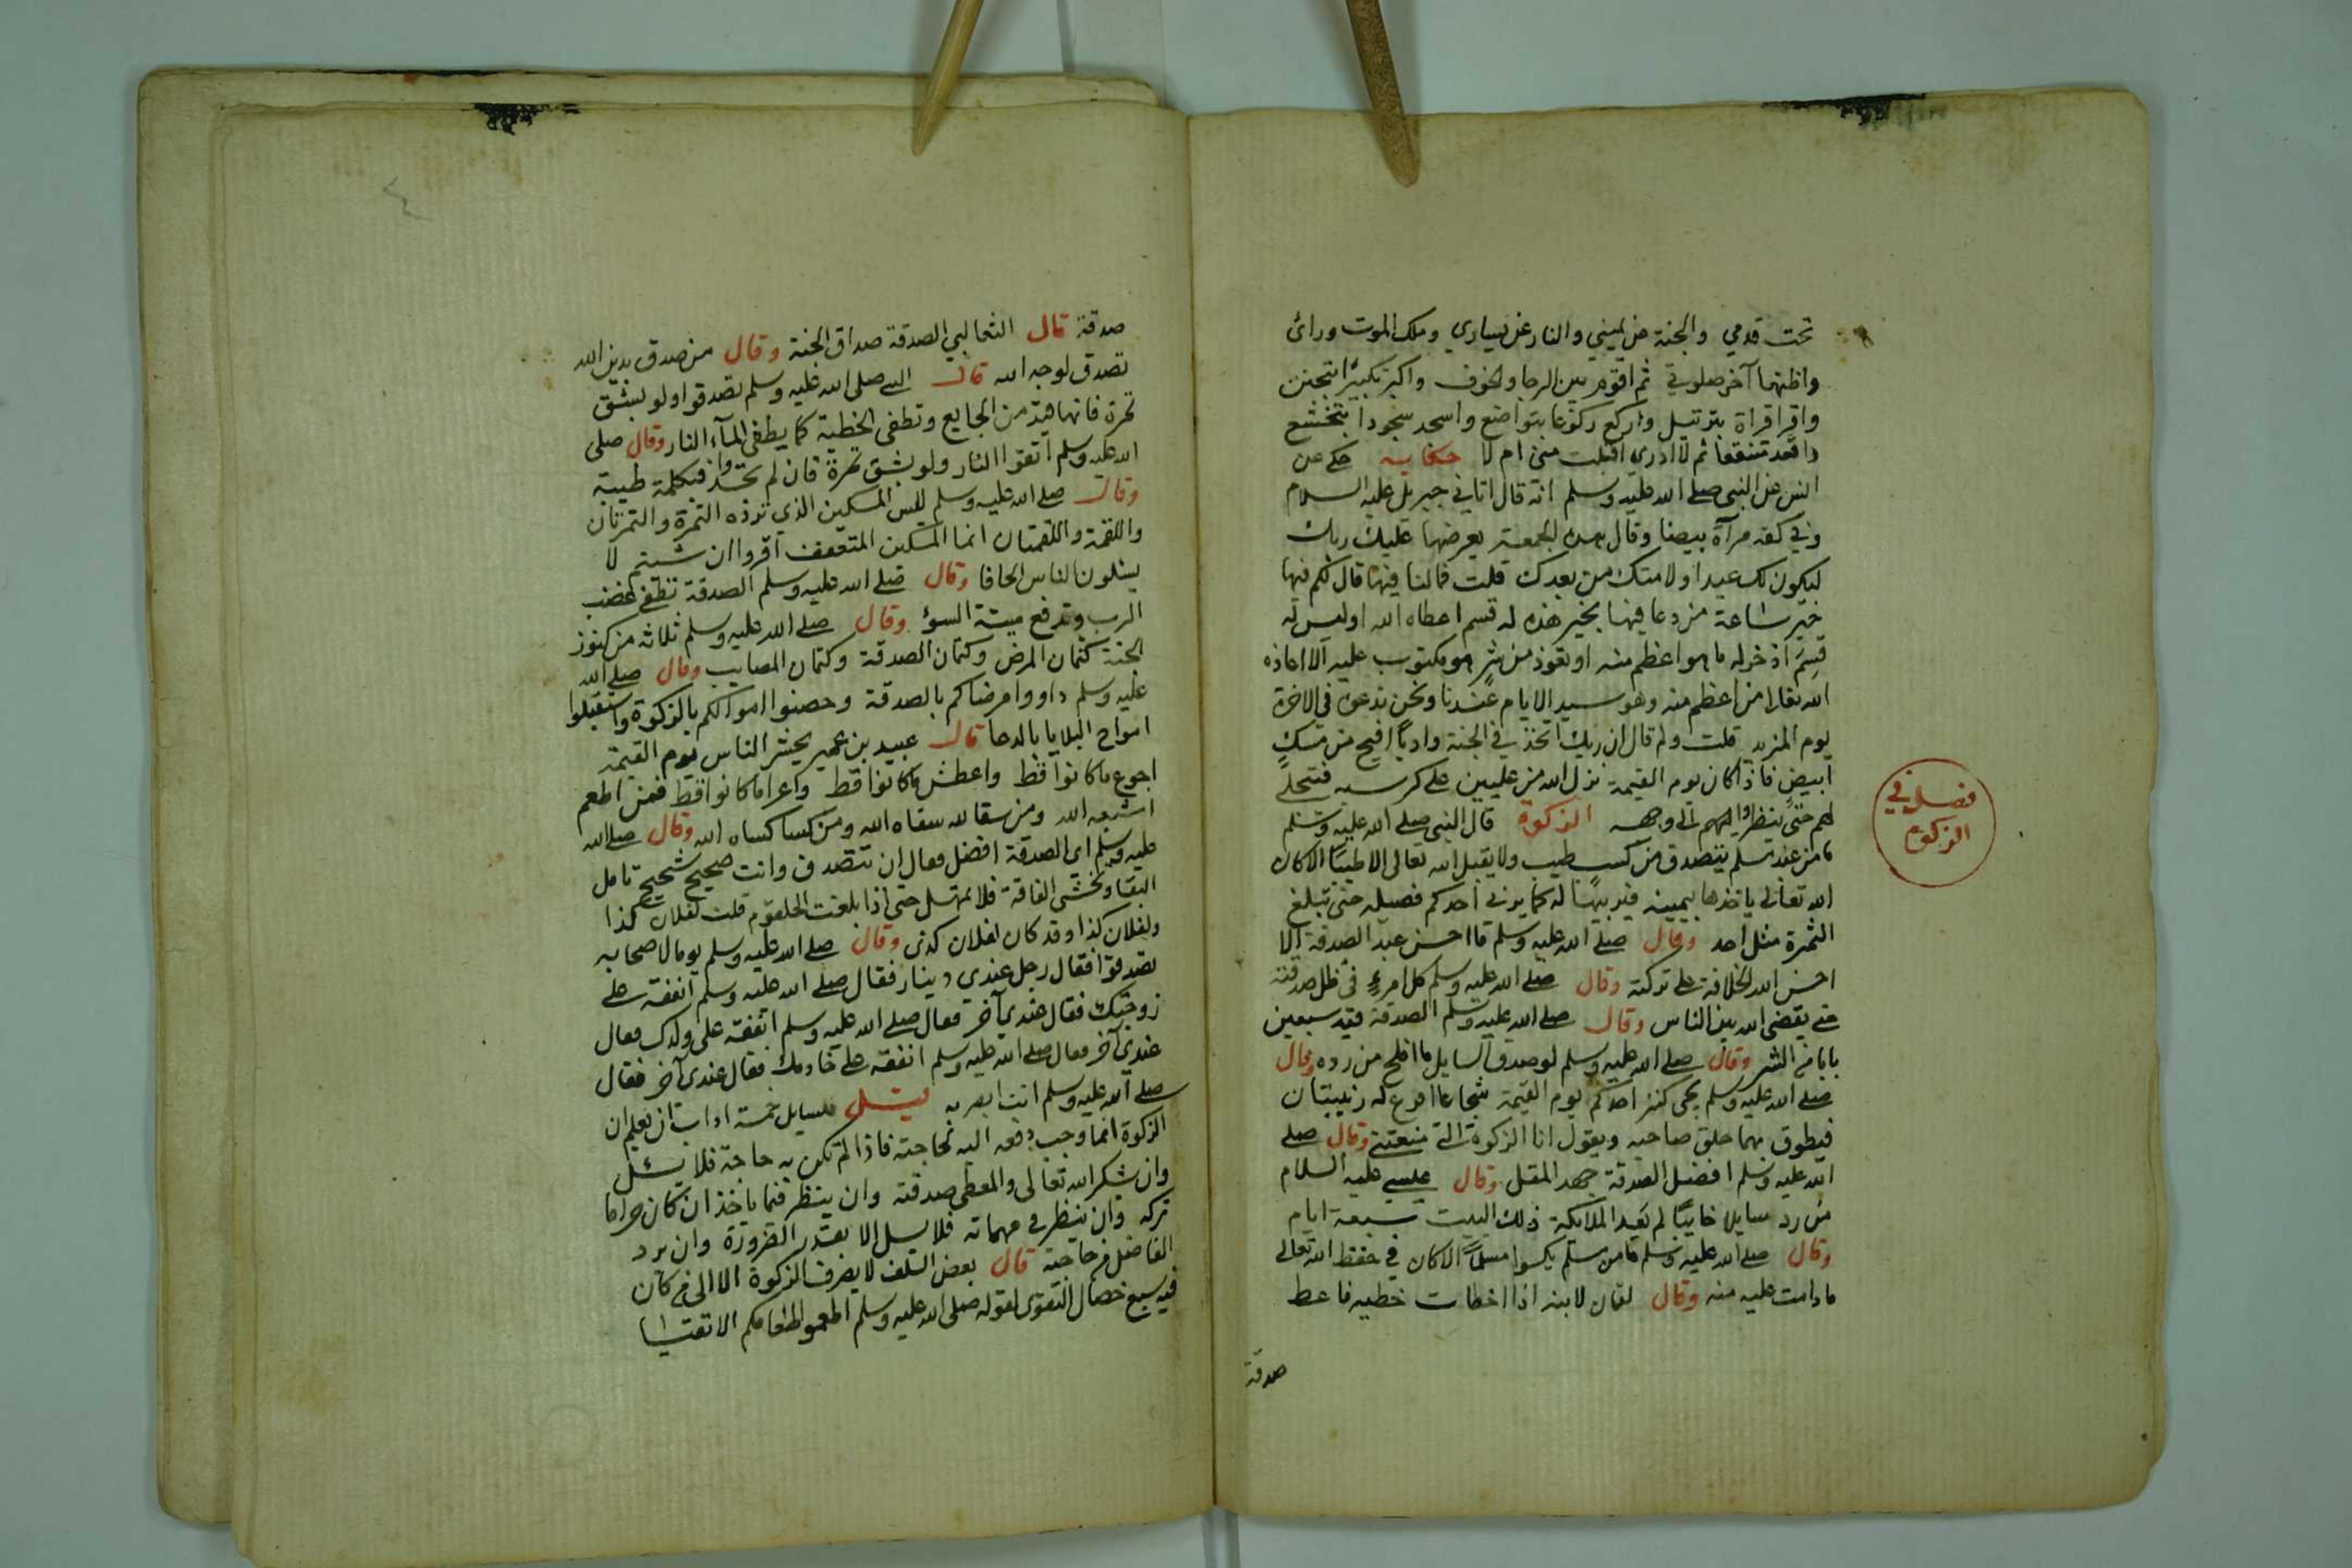 تحت قدمي والجنة عن يميني والنار عن يساري وملك الموت ورائ
واظنها آخر صلوتي ثم اقوم بين الرجا والخوف واكبر تكبيرا بتحنن
واقرا قراة بترتيل واركع ركوعا بتواضع واسجد سجودا بتخشع
واقعد ثم لا ادري اقبلت مني ام لا حكاية حكي عن
انس عن النبي صلى الله عليه وسلم انه قال اتاني جبريل عليه السلام
وفي كفه مرآة بيضا وقال هذه الجمعة يعرضها عليك ربك
ليكون لك عيدا ولامتك من بعدك قلت فما لنا فيها قال لكم فيها
خير ساعة من دعا فيها بخير هذه له قسم اعطاه الله او ليس له
قسم اذخر له ما هو اعظم منه او تعوذ من شر هو مكتوب عليه الا اعاذه
الله تعالى من اعظم منه وهو سيد الايام عندنا ونحن ندعوه في الاخرة
يوم المزيد قلت ولم قال ان ربك اتخذ في الجنة واديا افيح من مسك
ابيض فاذا كان يوم القيمة نزل الله من عليين على كرسيه فتجلى
لهم حتى ينظروا الى وجهه الزكوة قال النبي صلى الله عليه وسلم
ما من عبد مسلم يتصدق من كسب طيب ولا يقبل الله تعالى الا طيبا الا كان
الله تعالى ياخذها بيمينه فيربيها له كما يربي احدكم فصيله حتى تبلغ
الثمرة مثل احد وقال صلى الله عليه وسلم ما احسن عبد الصدقة الا
احسن الله الخلافة على تركته وقال صلى الله عليه وسلم كل امرء في ظل صدقته
حتى يقضى الله بين الناس وقال صلى الله عليه وسلم الصدقة سبعين
بابا من الشر وقال صلى الله عليه وسلم لو صدق السايل ما افلح من رده وقال
صلى الله عليه وسلم يجي كنز احدكم يوم القيمة شجاعا اقرع له زبيبتان
فيطوق بهما حلق صاحبه ويقول انا الزكوة التي منعتني وقال صلى
الله عليه وسلم افضل الصدقة جهد المقل وقال عيسى عليه السلام
من رد سايلا خايبا لم الملايكة ذلك البيت سبعة ايام
وقال صلى الله عليه وسلم ما من مسلم يكسوا مسلما الا كان في حفظ الله تعالى
ما دامت عليه منه وقال لقمان لابنه اذا اخطات خطيه فاعط
صدقة
فصل في
الزكوة
صدقة قال الثعالبي الصدقة صداق الجنة وقال من صدق بدين الله
تصدق لوجه الله قال النبي صلى الله عليه وسلم تصدقوا ولو بشق
تمرة فانها من الجايع وتطفى الخطية كما يطفى المآء النار وقال صلى
الله عليه وسلم اتقوا النار ولو بشق تمرة فان لم تجدوا فبكلمة طيبة
وقال صلى الله عليه وسلم ليس المسكين الذي ترده التمرة والتمرتان
واللقمة واللقمتان انما المسكين المتعفف اقروا ان شيتم لا
يسئلون الناس الحافا وقال صلى الله عليه وسلم الصدقة تطفى غضب
الرب وتدفع ميتة السوء وقال صلى الله عليه وسلم ثلاثه من كنوز
الجنة كتمان المرض وكتمان الصدقة وكتمان المصايب وقال صلى الله
عليه وسلم داووا مرضاكم بالصدقة وحصنوا اموالكم بالزكوة واستقبلوا
امواج البلايا بالدعا قال عبيد بن عمير يحشر الناس يوم القيمة
اجوع ما كانوا قط واعطش ما كانوا قط واعرا ما كانوا قط فمن اطعم
اشبعه الله ومن سقا لله سقاه الله ومن كسا كساه الله وقال صلى الله
عليه وسلم اي الصدقة افضل فقال ان تتصدق وانت صحيح شحيح تامل
البقا وتخشى الفاقة فلا تمهل حتى اذا بلغت الحلقوم قلت لفلان كذا
ولفلان كذا وقد كان لفلان كذى وقال صلى الله عليه وسلم يوما لاصحابه
تصدقوا فقال رجل عندي دينار فقال صلى الله عليه وسلم انفقه على
زوجتك فقال عندي آخر فقال صلى الله عليه وسلم انفقه على ولدك فقال
عندي آخر فقال صلى الله عليه وسلم انفقه على خادمك فقال عندي آخر فقال
صلى الله عليه وسلم انت ابصر به للسايل خمسة اداب ان يعلم ان
الزكوة انما وجب دفعه اليه لحاجته فاذا لم تكن به حاجة فلا يسئل
وان شكر الله تعالى والمعطي صدقته وان ينظر فيما ياخذ ان كان حراما
تركه وان ينظر في مهماته فلا يسل الا بقدر الضرورة وان يرد
الفاضل من حاجته قال بعض السلف لا يصرف الزكوة الا الى من كان
فيه سبع خصال التقوى لقوله صلى الله عليه وسلم اطعموا طعامكم الاتقيا